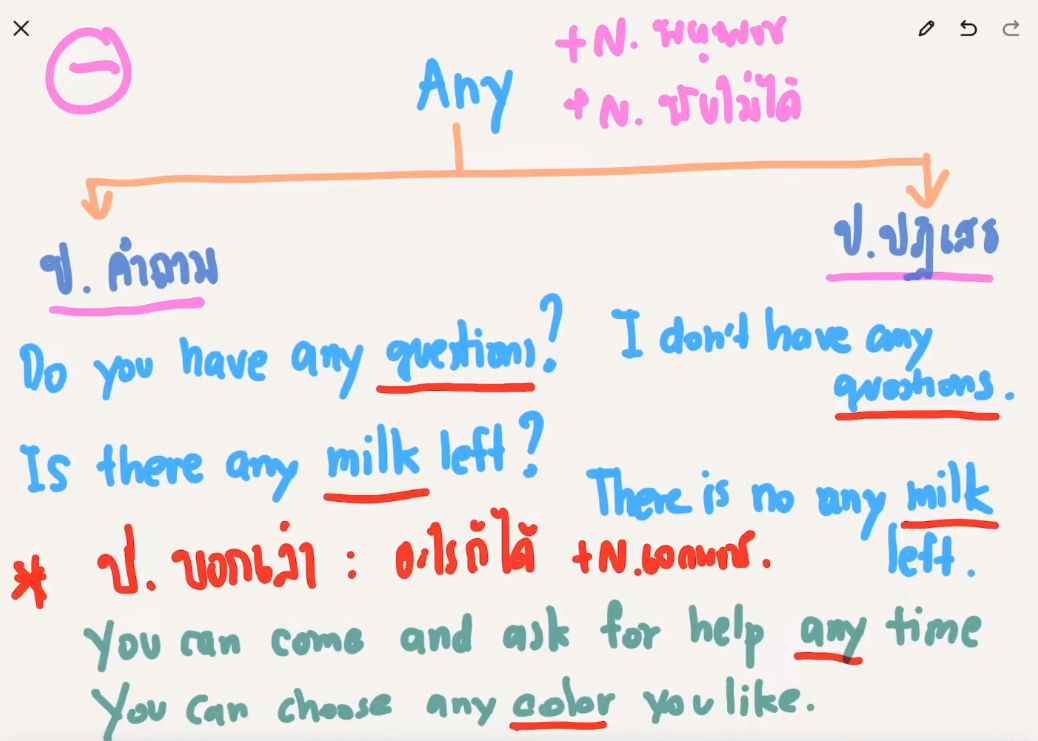 Any
+ N. พหูพจน์
+ N. นับไม่ได้
ป. คำถาม
ป. ปฏิเสธ
Do you have any questions?
I don't have any
questions.
Is there any milk left?
There is no any milk
left.
* ป. บอกเล่า : อะไรก็ได้ +N. เอกพจน์.
You can come and ask for help any time
You can choose any color you like.